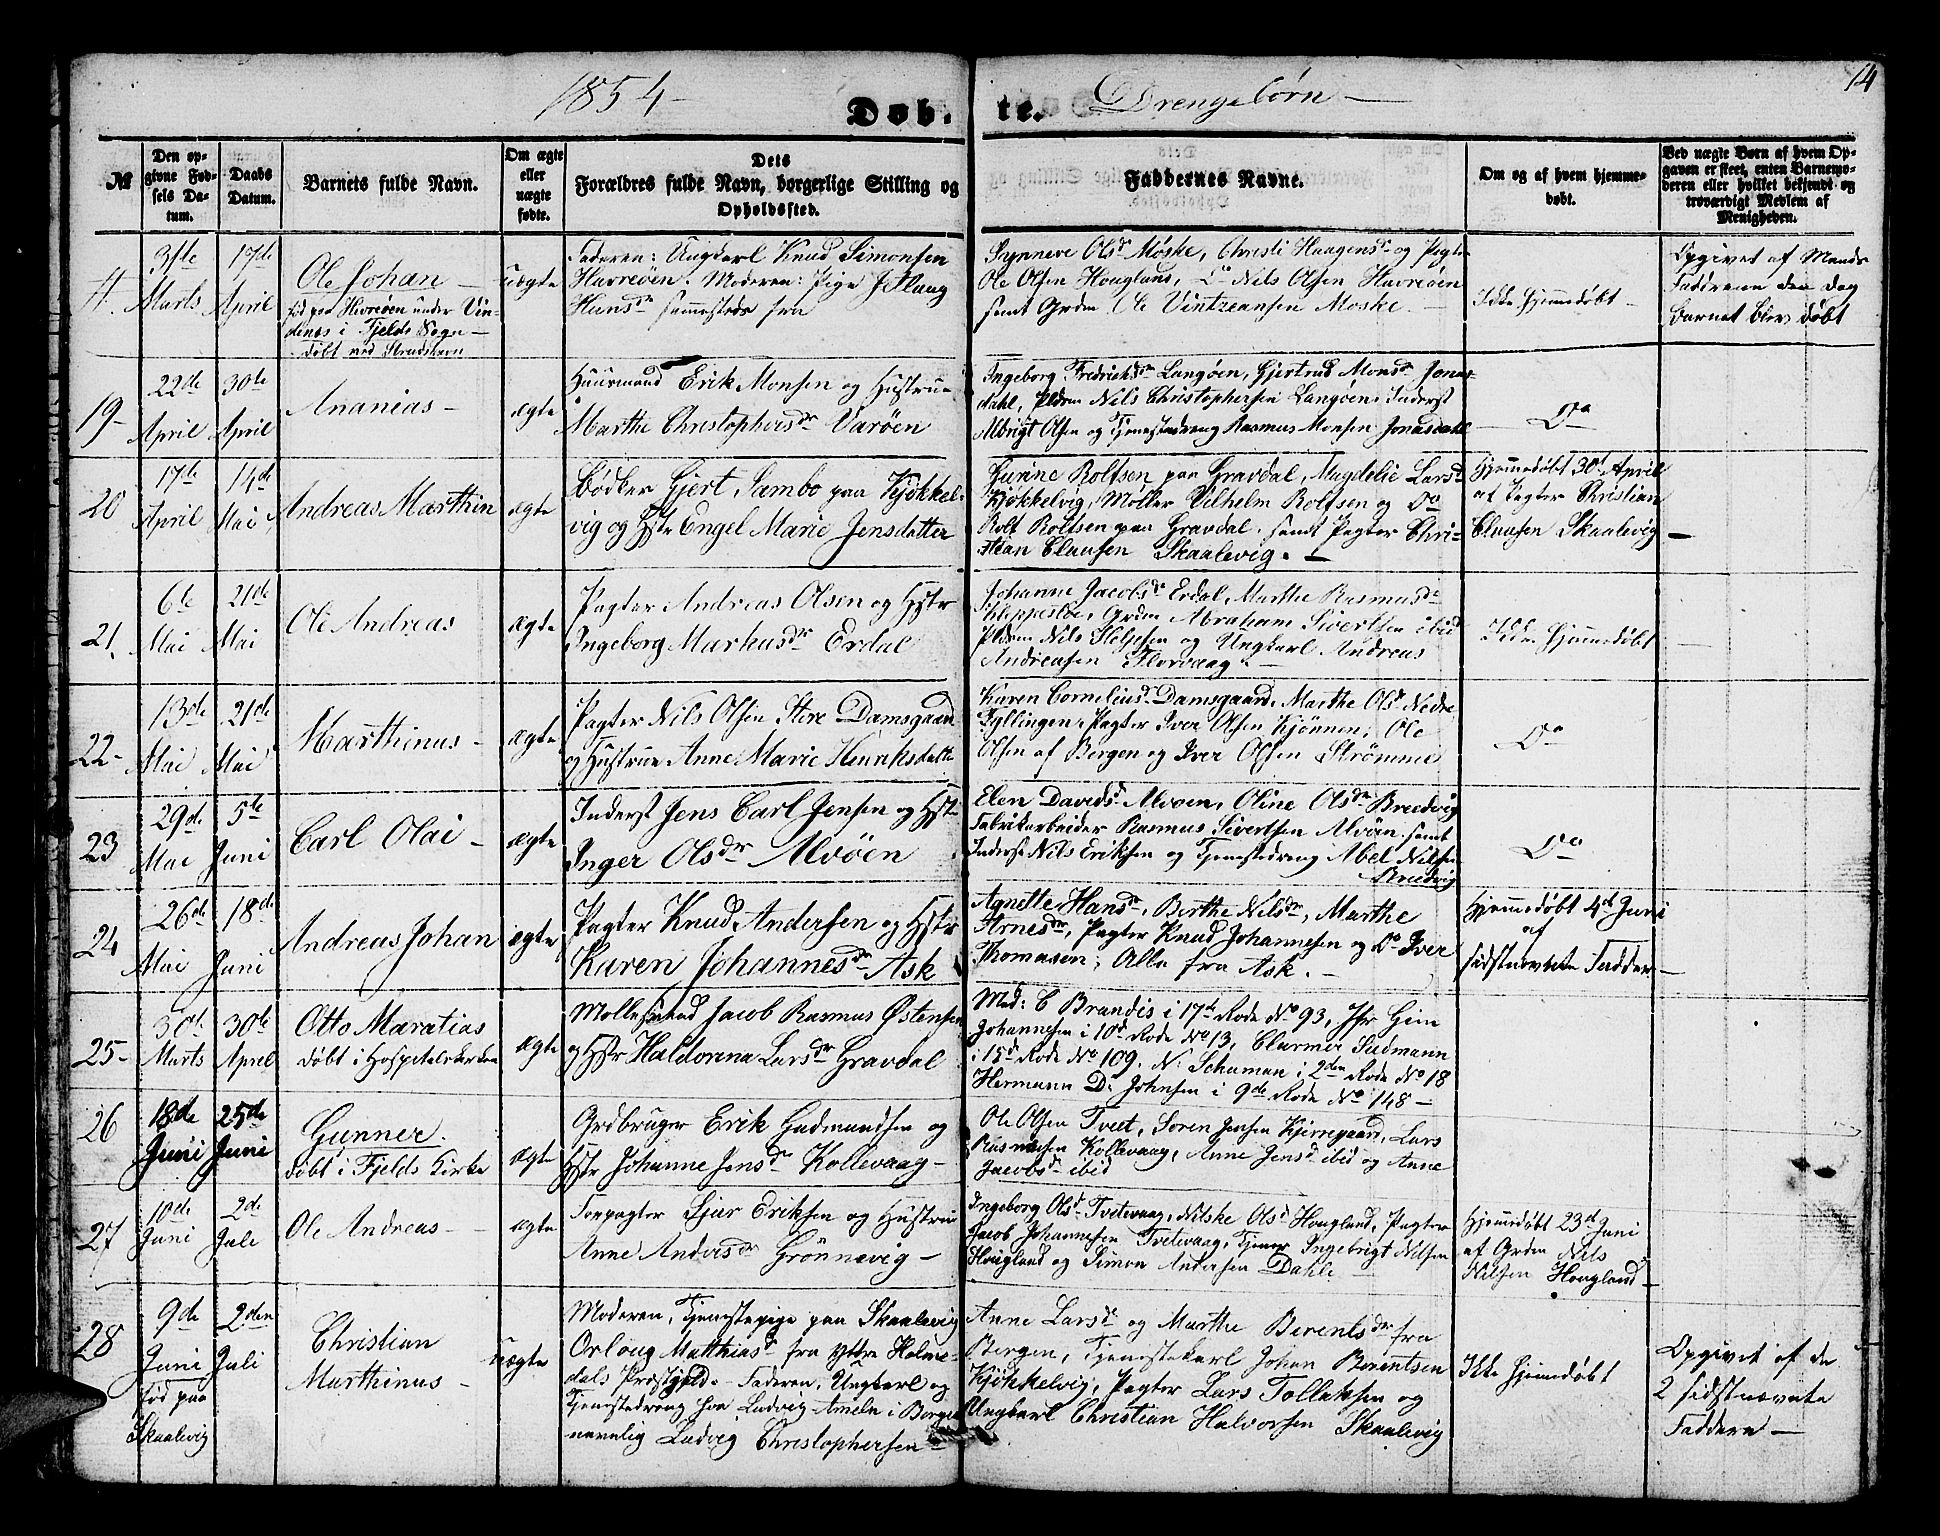 1854 -
Døb.
te.
Drengebørn -
14
№
Den op-
givne Fød-
sels Da-
tum.
Daabs
Datum.
Barnets fulde Navn.
Om ægte
eller
uægte
fødte.
Dets
Forældres fulde Navn, borgerlige Stilling og
Opholdssted.
Faddernes Navne.
Om og af hvem hjemme-
døbt.
Ved uægte Børn af hvem Op-
gaven er skeet, enten Barnemo-
deren eller hvilket bekjendt og
troværdigt Medlem af
Menigheden.
4.
31te
Marts
17de
April
Ole Johan -
født paa Havreøen under Vin-
denes i Fjelds Sogn -
døbt ved Strudshavn
uægte
Faderen: Ungkarl Knud Simonsen
Havreøen. Moderen: Pige
Hansdr sammesteds fra
Synneve Olsdr Møske, Christi Haagensdr og Pagter
Ole Olsen Hougland, Do Nils Olsen Havreøen
samt Grdm Ole Vintzeansen Moske. -
Ikke hjemmedøbt -
Opgivet af
Faderen den dag
Barnet blev døbt
19 -
22de
April
30te
April
Ananias -
ægte
Huusmand Erik Monsen og Hustrue
Marthe Christophersdr Varøen
Ingeborg Fredriksdr Langøen, Gjertrud Monsdr Jonas-
dahl, Pldrm Nils Christophersen Langøen, Inderst
Albrigt Olsen og Tjenestedreng Rasmus Monsen Jonasdahl
- Do
20
17de
April
14de
Mai
Andreas Marthin
ægte
Bødker Gjert Sambo paa Kjøkkel-
vig og Hstr Engel Marie Jensdatter
Gurine Rolfsen paa Gravdal, Magdelie Larsd
Kjøkkelvig, Møller Vilhelm Rolfsen og Do
Rolf Rolfsen paa Gravdal samt Pagter Chri-
stian Clausen Skaalevig. -
Hjemmedøbt 30te April
af Pagter Christian
Clausen Skaalevig -
21.
6te
Mai
21de
Mai
Ole Andreas
ægte
Pagter Andreas Olsen og Hstr
Ingeborg Markusdr Erdal
Johanne Jacobsdr Erdal, Marthe Rasmusdr
Kleppestøe, Grdm Abraham Sivertsen ibid
Pldrm Nils Helgesen og Ungkarl Andreas
Andreasen Florvaag -
Ikke hjemmedøbt
22 -
13de
Mai
21de
Mai
Marthinus -
ægte
Pagter Nils Olsen Store Damsgaard
og Hustrue Anne Marie Henriksdatter
Karen Corneliusdr Damsgaard, Marthe Olsdr Nedre
Fyllingen, Pagter Iver Olsen Kjønnen, Ole
Olsen af Bergen og Iver Olsen Strømme
Do
23
29de
Mai
5te
Juni
Carl Olai -
ægte
Inderst Jens Carl Jensen og Hstr
Inger Olsdr Alvøen
Elen Davidsdr Alvøen, Oline Olsdr Bredvig
Fabrikarbeider Rasmus Sivertsen Alvøen samt
Inderst Nils Eriksen og Tjenestedreng Abel Nilsen
Bredvig
Do
24
26de
Mai
18de
Juni
Andreas Johan
ægte
Pagter Knud Andersen og Hstr
Karen Johannesdr Ask
Agnette Hansdr, Berthe Nilsdr, Marthe
Arnesdr, Pagter Knud Johannesen og Do Iver
Thomasen, Alle fra Ask. -
Hjemmedøbt 4de Juni
af
sidstnævnte Fadder -
25 -
30te
Marts
30te
April
Otto Maratias
døbt i Hospitalskirken
ægte
Møllesvend Jacob Rasmus Østensen
og Hstr Haldorina Larsdr Gravdal
Mad: C Brandis i 17de Rode No 93, Jfr
Johannesen i 10de Rode No 13, Clarmer Sudmann
i 15de Rode No 109, N. Schuman i 2den Rode No 18
Hermann D. Johnsen i 9de Rode No 148 -
26
18de
Juni
25de
Juni
Gunner.
døbt i Fjelds Kirke
ægte
Grdbruger Erik Gudmundsen og
Hstr Johanne Jensdr Kollevaag -
Ole Olsen Tveet, Soren Jensen Kjirregaard, Lars
Rasmusen Kollevaag, Anne Jensdr ibid og Anne
Jacobsdr ibid
27
10de
Juni
2de
Juli
Ole Andreas -
ægte
Forpagter Sjur Eriksen og Hustrue
Anne Andrisdr Grønnevig -
Ingeborg Olsdr Tvetevaag, Nilske Olsdr Hougland, Pagter
Jacob Johannesen Tvetevaag, Tjener Ingebrigt Nilsen
Hougland og Simon Andersen Dahle -
Hjemmedøbt 23de Juni
af Grdm Nils
Nilsen Hougland -
28
9de
Juni
født paa
Skaalevig
2den
Juli
Christian
Marthinus -
uægte
Moderen, Tjenestepige paa Skaalevig
Orloug Matthiasdr fra Yttre Holme-
dals Præstgjeld. - Faderen, Ungkarl og
Tjenestedreng hos Ludvig Ameln i Bergen
navnlig Ludvig Christophersen -
Anne Larsdr og Marthe Berentsdr fra
Bergen, Tjenestekarl Johan Berentsen
Kjøkkelvig, Pagter Lars Tollaksen og
Ungkarl Christian Halvorsen Skaalevig
Ikke hjemmedøbt
Opgivet af de
2 sidstnævnte
Faddere -